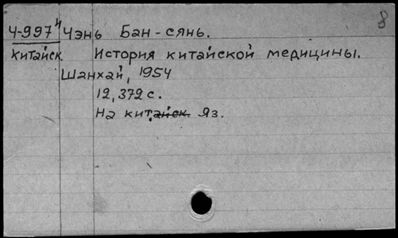 8
Ч-997" Чэнь Бан-сянь.
Китайск История китайской медицины.
Шанхай, 1954
12,372 с.
На китайск. яз.